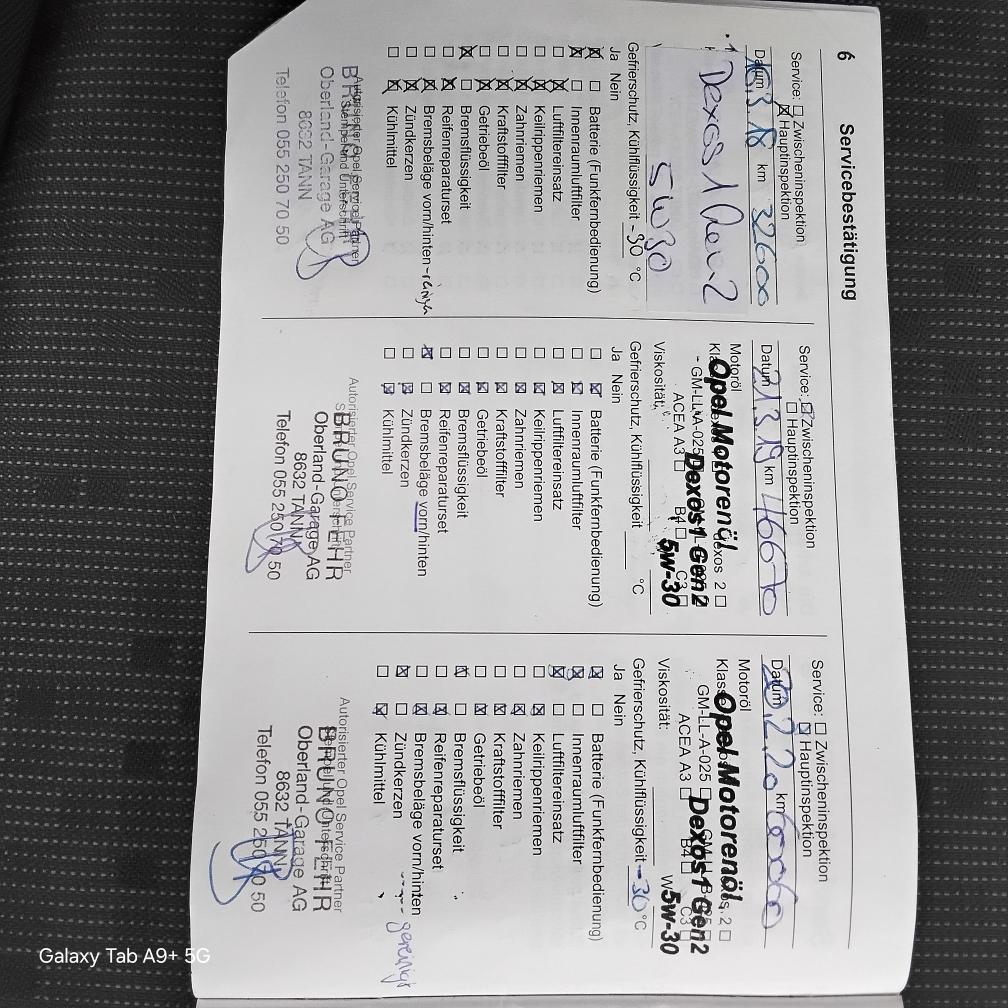 6 Servicebestätigung
Service: ☐ Zwischeninspektion
☒ Hauptinspektion
Datum 16.3.18 km 32600
Dexos 1 Gen 2
5W30
Gefrierschutz, Kühlflüssigkeit -30 °C
Ja Nein
☒ ☐ Batterie (Funkfernbedienung)
☒ ☐ Innenraumluftfilter
☐ ☒ Luftfiltereinsatz
☐ ☒ Keilrippenriemen
☐ ☒ Zahnriemen
☐ ☒ Kraftstofffilter
☐ ☒ Getriebeöl
☒ ☐ Bremsflüssigkeit
☐ ☒ Reifenreparaturset
☐ ☒ Bremsbeläge vorn/hinten
☐ ☒ Zündkerzen
☐ ☒ Kühlmittel
Autorisierter Opel Service Partner
Stempel und Unterschrift
Oberland-Garage AG
8632 TANN
Telefon 055 250 70 50
Service: ☒ Zwischeninspektion
☐ Hauptinspektion
Datum 21.3.19 km 46670
Motoröl
Opel Motorenöl
GM-LL-A-025
Dexos1 Gen2
ACEA A3 ☐ B4 ☐ C3 ☐
Viskosität: 5w-30
Gefrierschutz, Kühlflüssigkeit °C
Ja Nein
☐ ☒ Batterie (Funkfernbedienung)
☐ ☒ Innenraumluftfilter
☐ ☒ Luftfiltereinsatz
☐ ☒ Keilrippenriemen
☐ ☒ Zahnriemen
☐ ☒ Kraftstofffilter
☐ ☒ Getriebeöl
☐ ☒ Bremsflüssigkeit
☐ ☒ Reifenreparaturset
☒ ☐ Bremsbeläge vorn/hinten
☐ ☒ Zündkerzen
☐ ☒ Kühlmittel
Autorisierter Opel Service Partner
BRUNO FEHR
Oberland-Garage AG
8632 TANN
Telefon 055 250 70 50
Service: ☐ Zwischeninspektion
☒ Hauptinspektion
Datum 20.2.20 km 60060
Motoröl
Opel Motorenöl
GM-LL-A-025
Dexos1 Gen2
ACEA A3 ☐ B4 ☐ C3 ☐
Viskosität: 5w-30
Gefrierschutz, Kühlflüssigkeit -30 °C
Ja Nein
☒ ☐ Batterie (Funkfernbedienung)
☒ ☐ Innenraumluftfilter
☒ ☐ Luftfiltereinsatz
☐ ☒ Keilrippenriemen
☐ ☒ Zahnriemen
☐ ☒ Kraftstofffilter
☐ ☒ Getriebeöl
☒ ☐ Bremsflüssigkeit
☐ ☒ Reifenreparaturset
☐ ☒ Bremsbeläge vorn/hinten - gereinigt
☒ ☐ Zündkerzen
☐ ☒ Kühlmittel
Autorisierter Opel Service Partner
BRUNO FEHR
Oberland-Garage AG
8632 TANN
Telefon 055 250 70 50
Galaxy Tab A9+ 5G